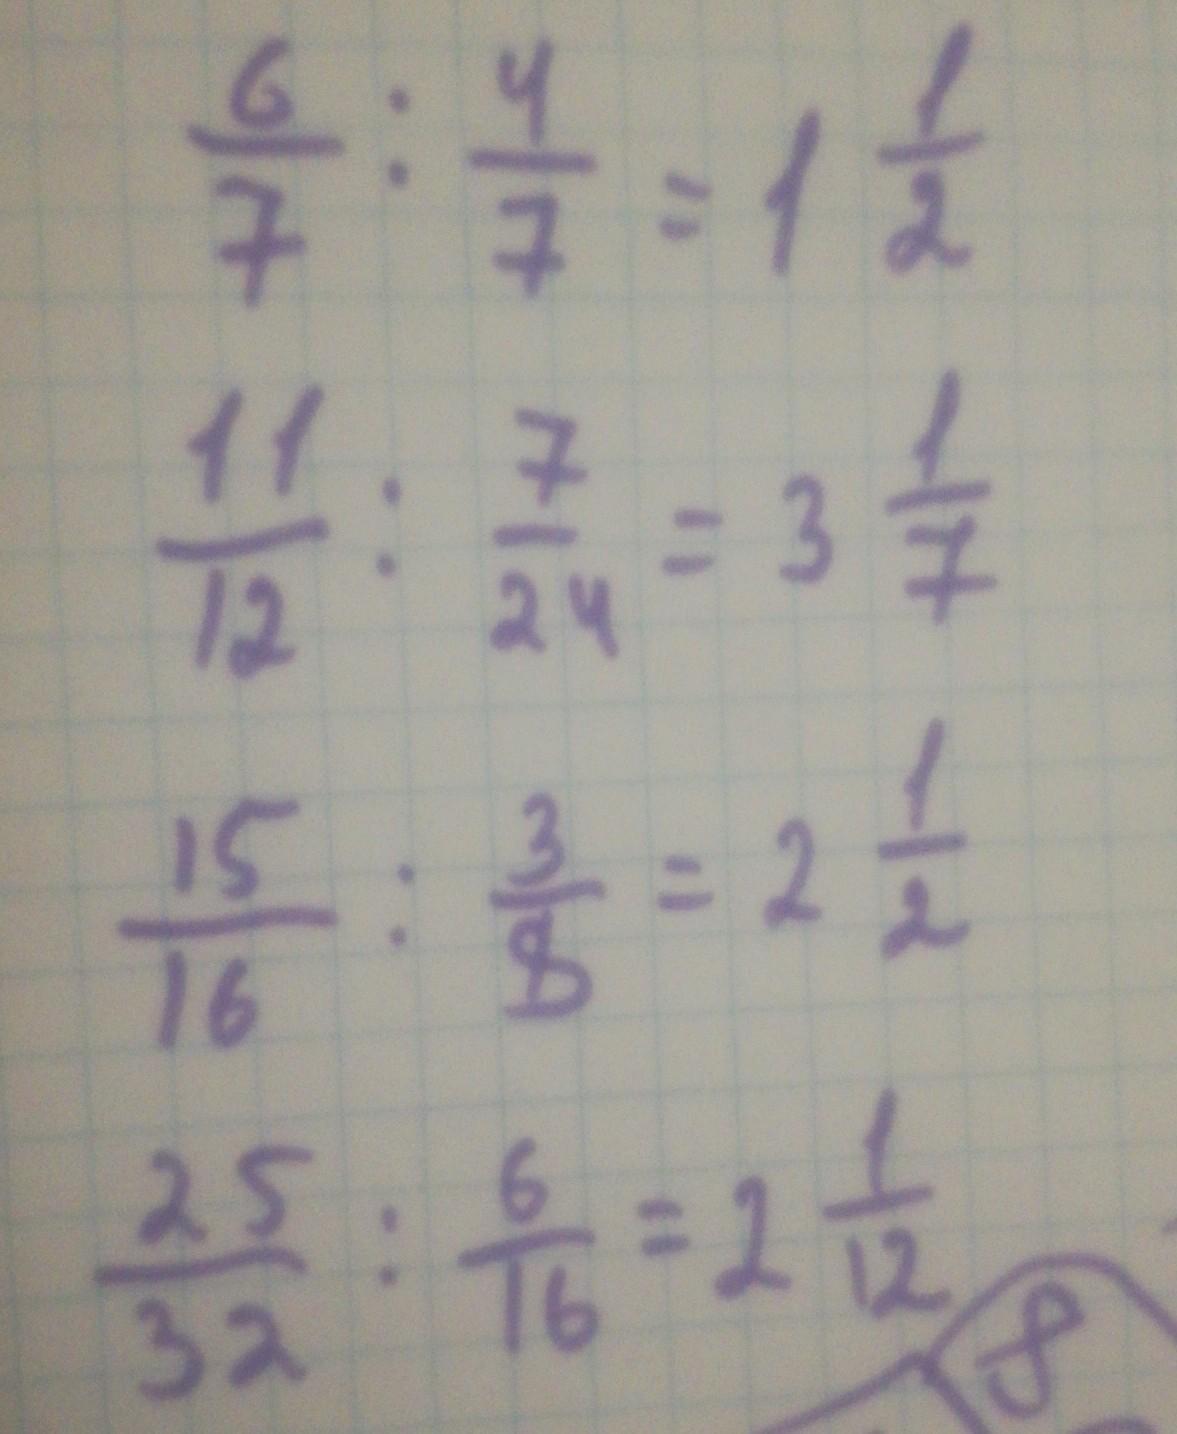 6/7 : 4/7 = 1 1/2
11/12 : 7/24 = 3 1/7
15/16 : 3/8 = 2 1/2
25/32 : 6/16 = 2 1/12
8